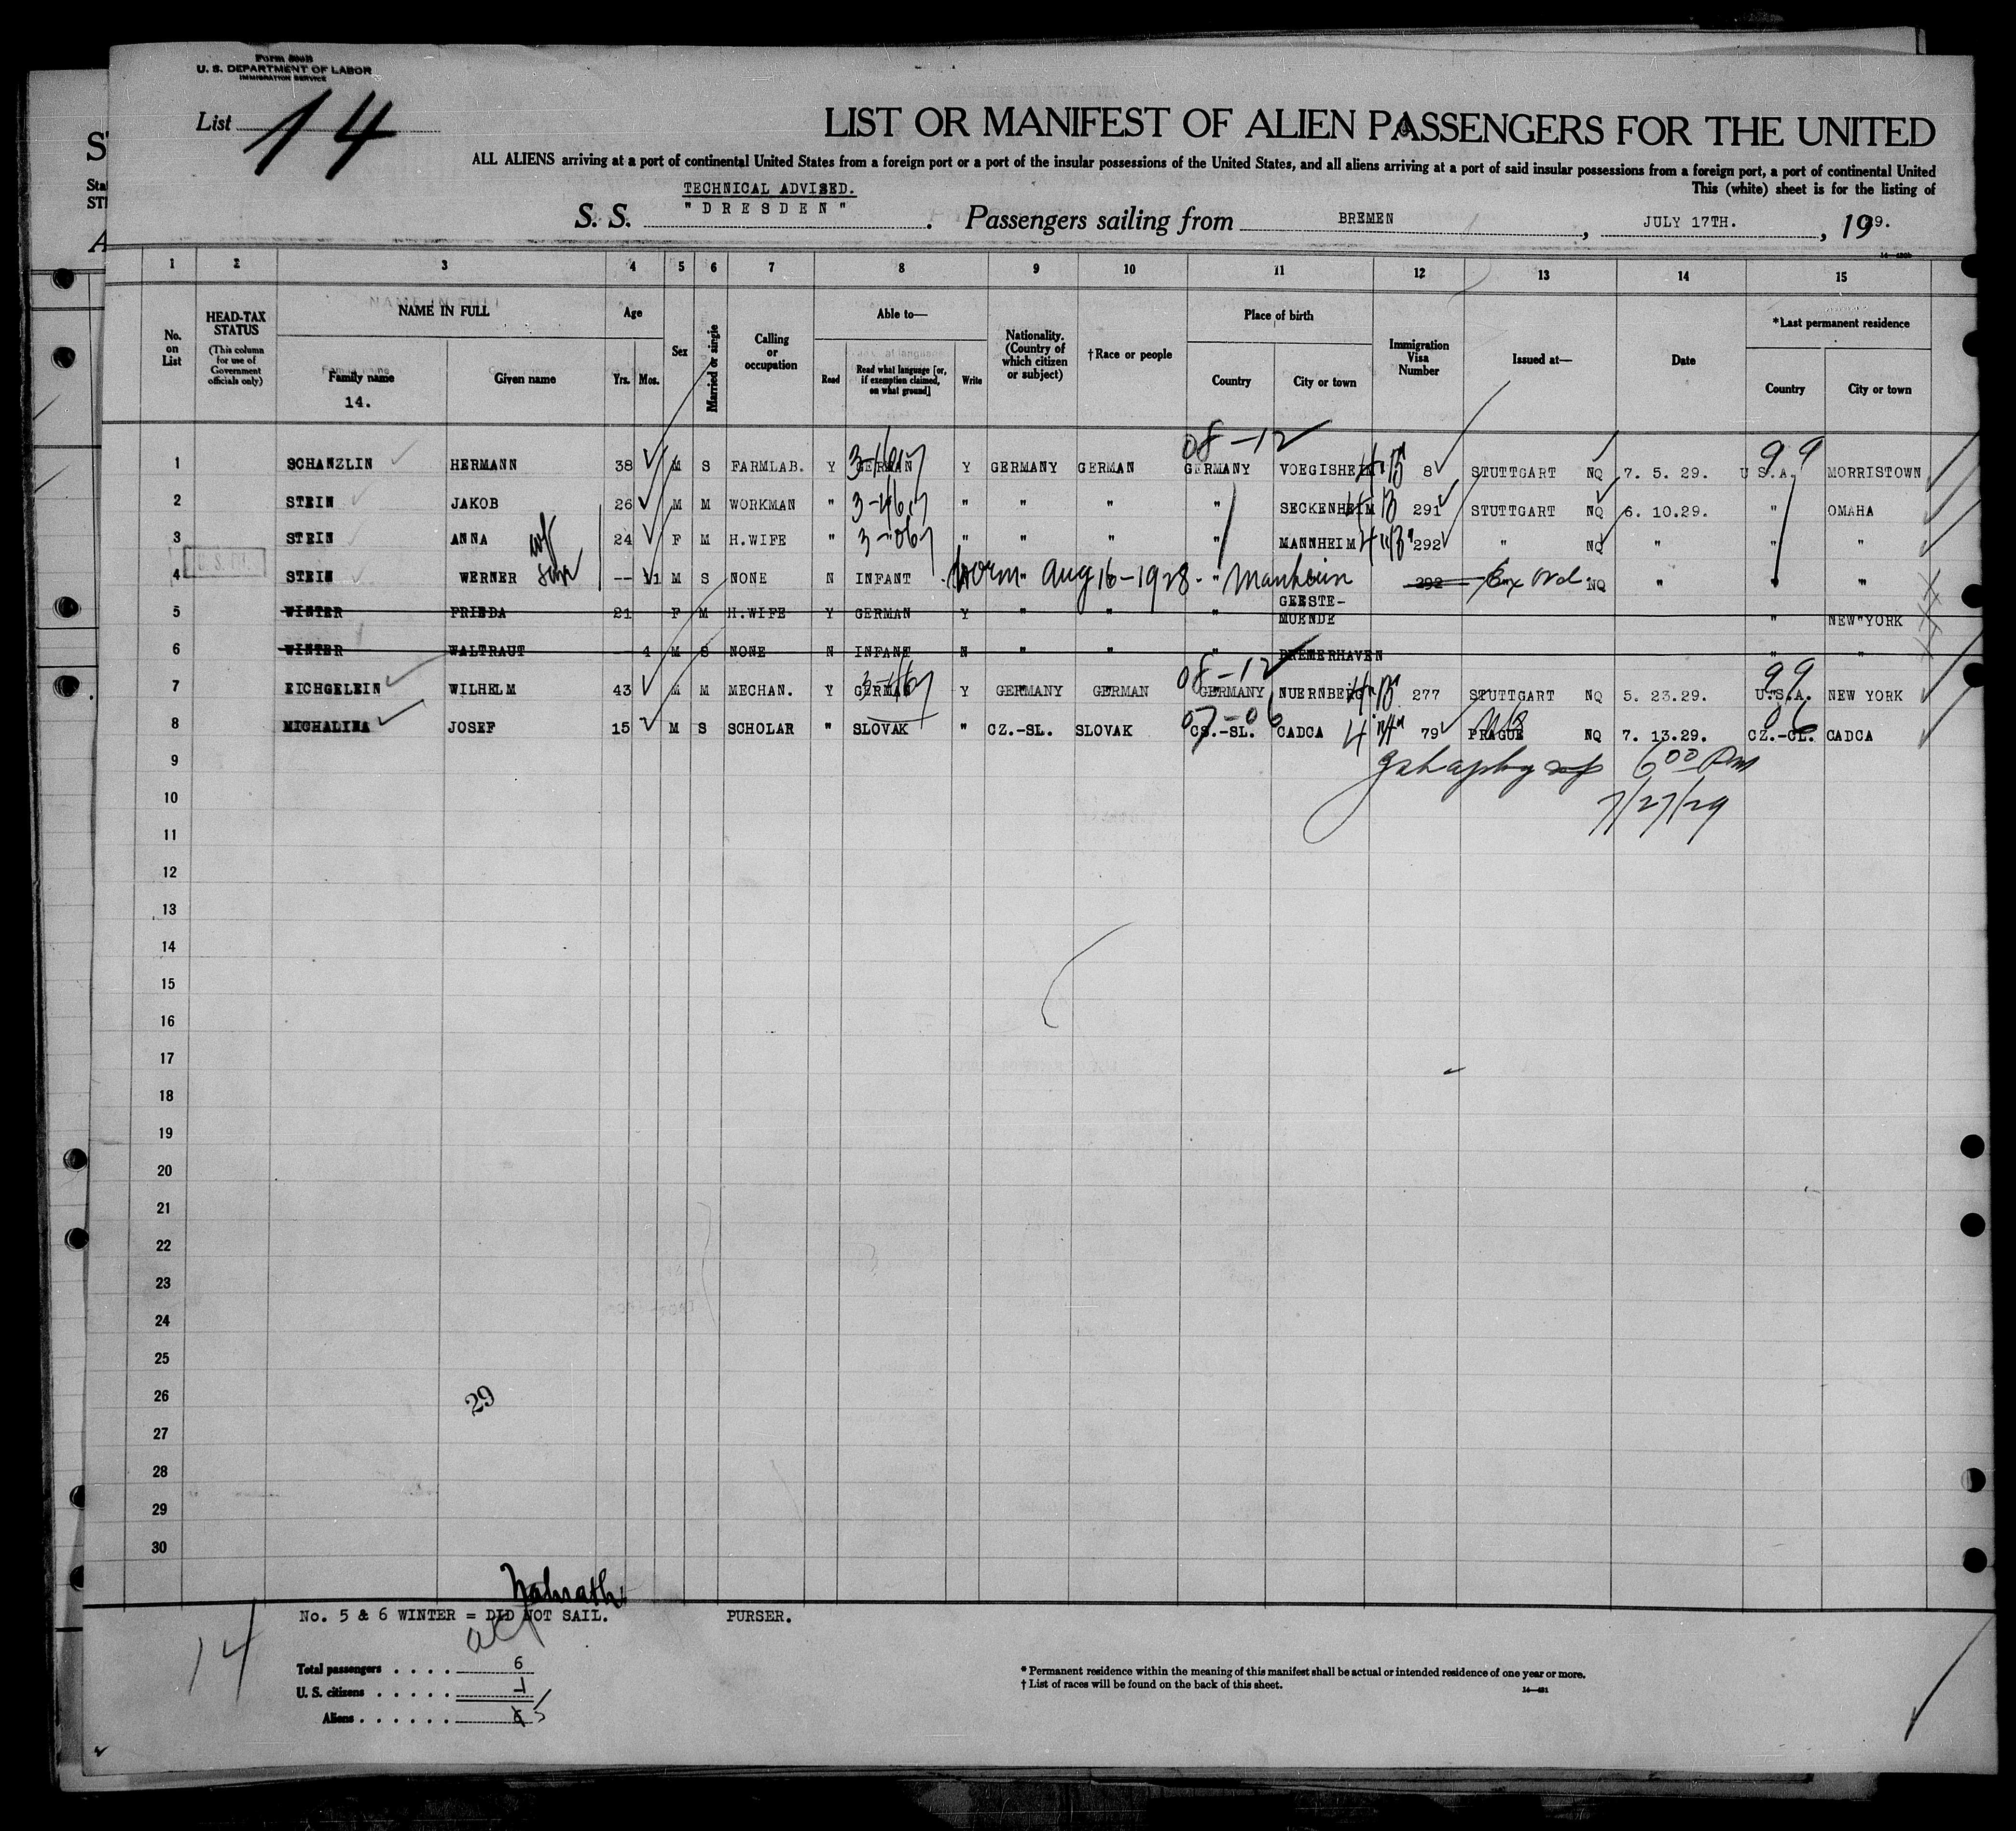 Form 500B
U. S. DEPARTMENT OF LABOR
IMMIGRATION SERVICE
List 14
LIST OR MANIFEST OF ALIEN PASSENGERS FOR THE UNITED
ALL ALIENS arriving at a port of continental United States from a foreign port or a port of the insular possessions of the United States, and all aliens arriving at a port of said insular possessions from a foreign port, a port of continental United
This (white) sheet is for the listing of
TECHNICAL ADVISED.
S. S. "DRESDEN". Passengers sailing from BREMEN, JULY 17TH., 1929.
1 2 3 4 5 6 7 8 9 10 11 12 13 14 15
No. on List
HEAD-TAX STATUS (This column for use of Government officials only)
NAME IN FULL
Family name
Given name
14.
Age
Yrs. Mos.
Sex
Married or single
Calling or occupation
Able to—
Read
Read what language [or, if exemption claimed, on what ground]
Write
Nationality. (Country of which citizen or subject)
†Race or people
Place of birth
Country
City or town
Immigration Visa Number
Issued at—
Date
*Last permanent residence
Country
City or town
08-12 99
1 SCHANZLIN HERMANN 38 M S FARMLAB. Y GERMAN Y GERMANY GERMAN GERMANY VOEGISHEIM 8 STUTTGART NQ 7. 5. 29. U.S.A. MORRISTOWN
2 STEIN JAKOB 26 M M WORKMAN " " " " " SECKENHEIM 291 STUTTGART NQ 6. 10.29. " OMAHA
3 STEIN ANNA wf 24 F M H.WIFE " " " " " " MANNHEIM 292 " NQ " " "
4 STEIN WERNER son -- 11 M S NONE N INFANT Born Aug 16-1928 - " Manheim 292 NQ " " "
5 WINTER FRIEDA 21 F M H.WIFE Y GERMAN Y " " " GEESTE-MUENDE " NEW YORK
6 WINTER WALTRAUT - 4 M S NONE N INFANT N " " " BREMERHAVEN " "
08-12 99
7 EICHGELEIN WILHELM 43 M M MECHAN. Y GERMAN Y GERMANY GERMAN GERMANY NUERNBERG 277 STUTTGART NQ 5. 23.29. U.S.A. NEW YORK
07-06 06
8 MICHALINA JOSEF 15 M S SCHOLAR " SLOVAK " CZ.-SL. SLOVAK CS.-SL. CADCA 79 PRAGUE NQ 7. 13.29. CZ.-CL. CADCA
9 6 00 Pm
10 7/27/29
11
12
13
14
15
16
17
18
19
20
21
22
23
24
25
26 29
27
28
29
30
No. 5 & 6 WINTER = DID NOT SAIL. PURSER.
14
Total passengers . . . . 6
U. S. citizens . . . . . 1
Aliens . . . . . . 5
* Permanent residence within the meaning of this manifest shall be actual or intended residence of one year or more.
† List of races will be found on the back of this sheet.